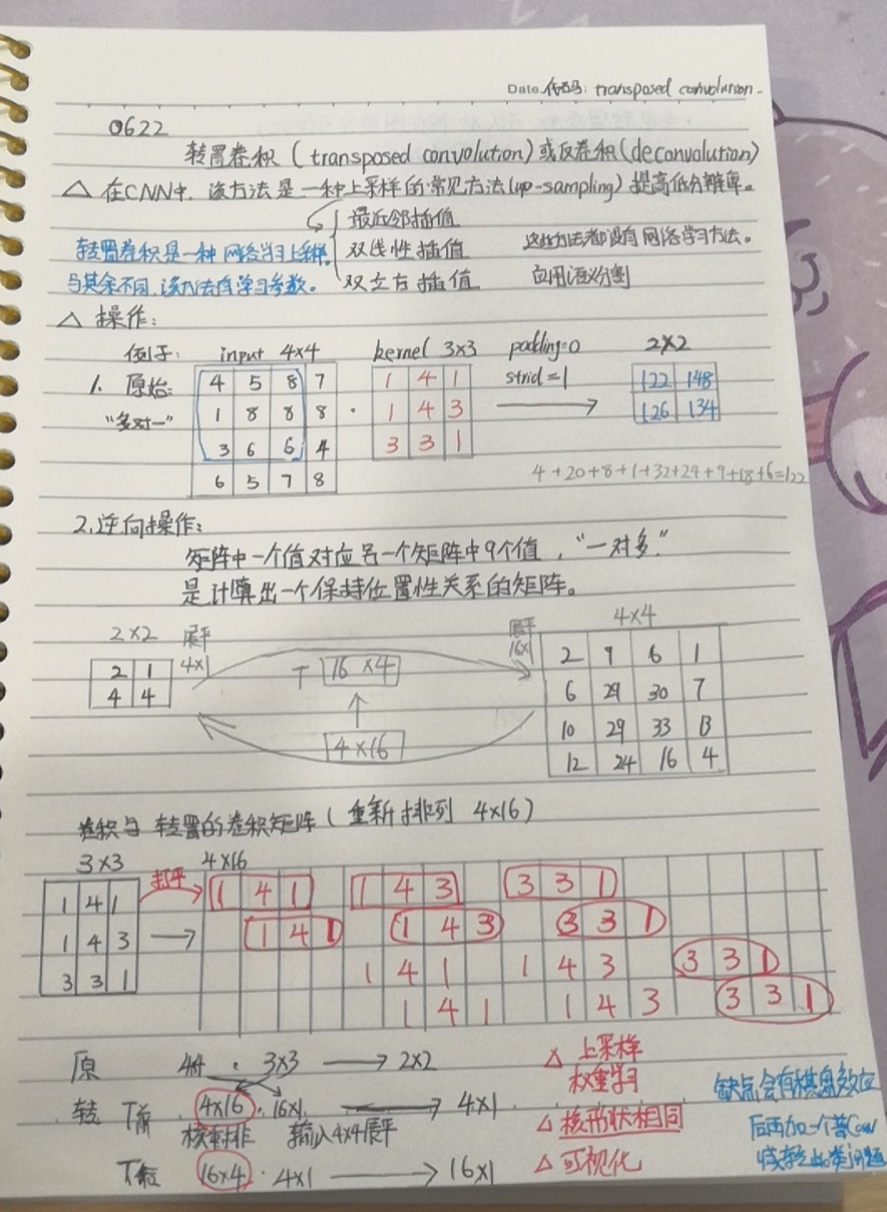 Data. 代码: transposed convolution.
0622
转置卷积 (transposed convolution) 或反卷积 (deconvolution)
△ 在CNN中, 该方法是一种上采样的常见方法(up-sampling) 提高低分辨率。
最近邻插值
转置卷积是一种 网络学习上采样, 双线性插值 这些方法都没有 网络学习方法。
与其余不同,该方法有学习参数。 双立方插值 应用语义分割
△ 操作:
例子: input 4×4 kernel 3×3 padding=0 2×2
1. 原始: 4 5 8 7 1 4 1 strid=1 122 148
"多对一" 1 8 8 8 · 1 4 3 126 134
3 6 6 4 3 3 1
6 5 7 8 4+20+8+1+32+24+9+18+6=122
2.逆向操作:
矩阵中一个值对应另一个矩阵中9个值, "一对多"
是计算出一个保持位置性关系的矩阵。
2×2 展平 展平 4×4
2 1 4×1 T 16×4 16×1 2 9 6 1
4 4 6 29 30 7
4×16 10 29 33 13
12 24 16 4
卷积与 转置的卷积矩阵 (重新排列 4×16)
3×3 打平 4×16
1 4 1 1 4 1 1 4 3 3 3 1
1 4 3 1 4 1 1 4 3 3 3 1
3 3 1 1 4 1 1 4 3 3 3 1
1 4 1 1 4 3 3 3 1
原 · 3×3 2×2 △ 上采样
权重学习 缺点,会有棋盘效应
转 T前 4×16 · 16×1 4×1
核重排 输入4×4展平 △ 核形状相同 后再加一个普Conv
T后 16×4 · 4×1 16×1 △ 可视化 减轻此类问题